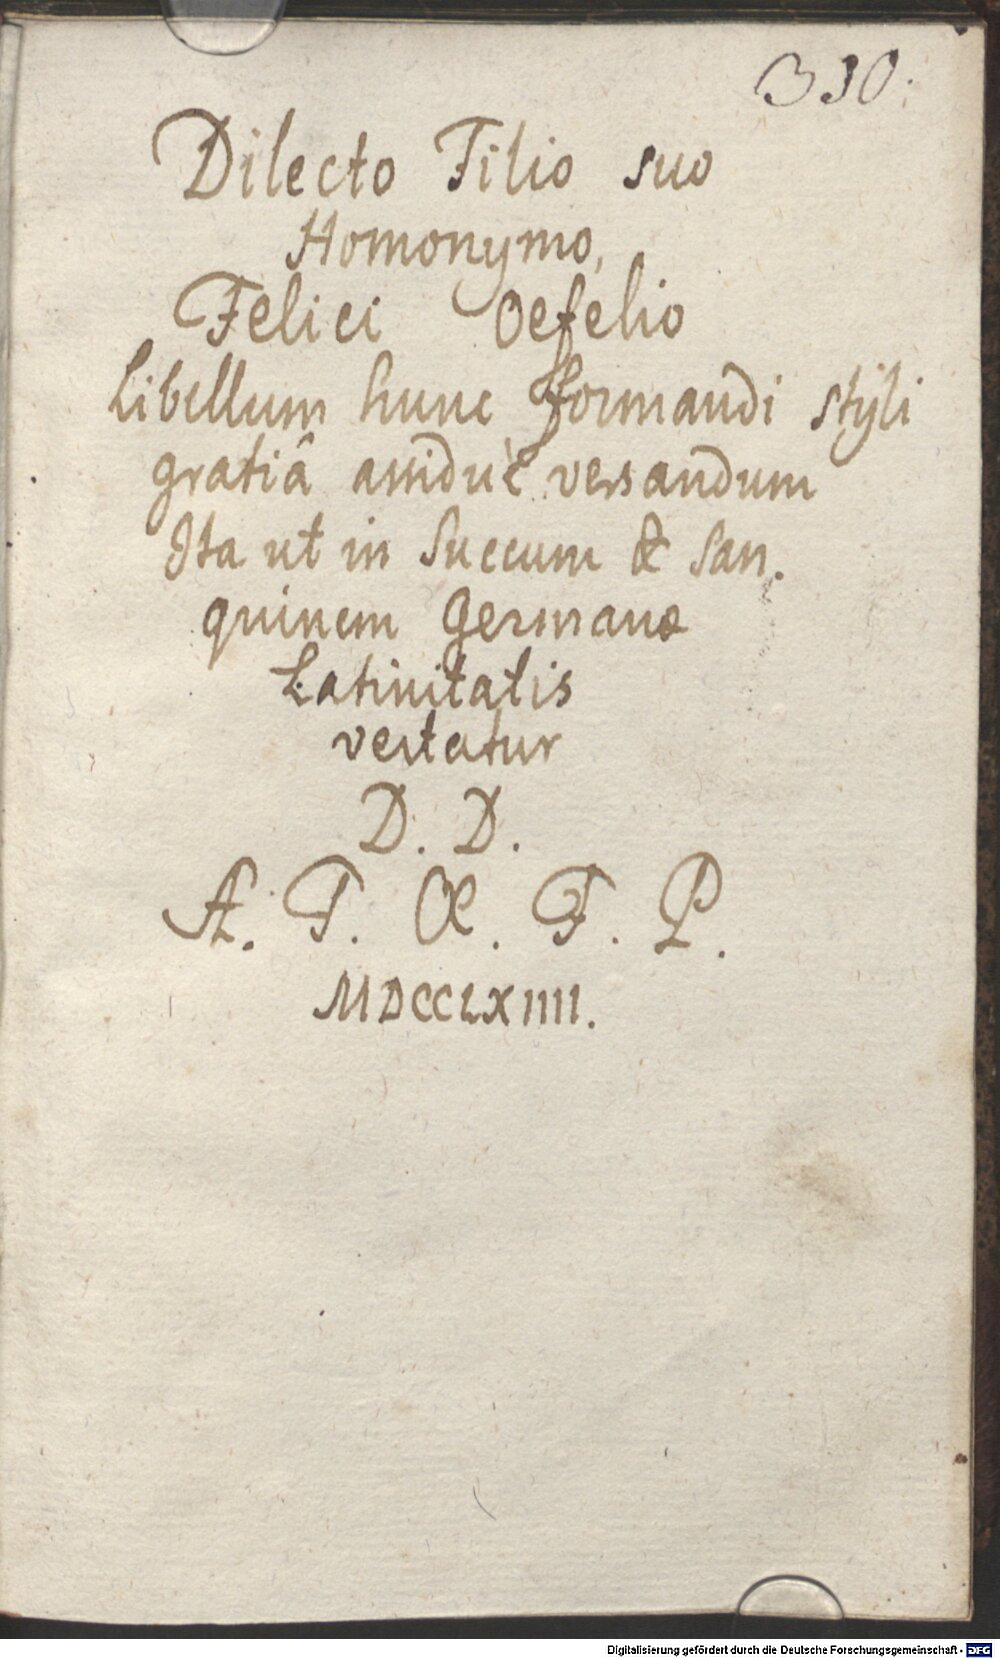 330.
Dilecto Filio suo
Homonymo,
Felici Oefelio
Libellum hunc formandi styli
gratiâ assiduè versandum
Ita ut in Succum & San.
guinem Germanæ
Latinitatis
vertatur
D. D.
A. F. Œ. F. P.
MDCCLXIIII.
Digitalisierung gefördert durch die Deutsche Forschungsgemeinschaft - DFG